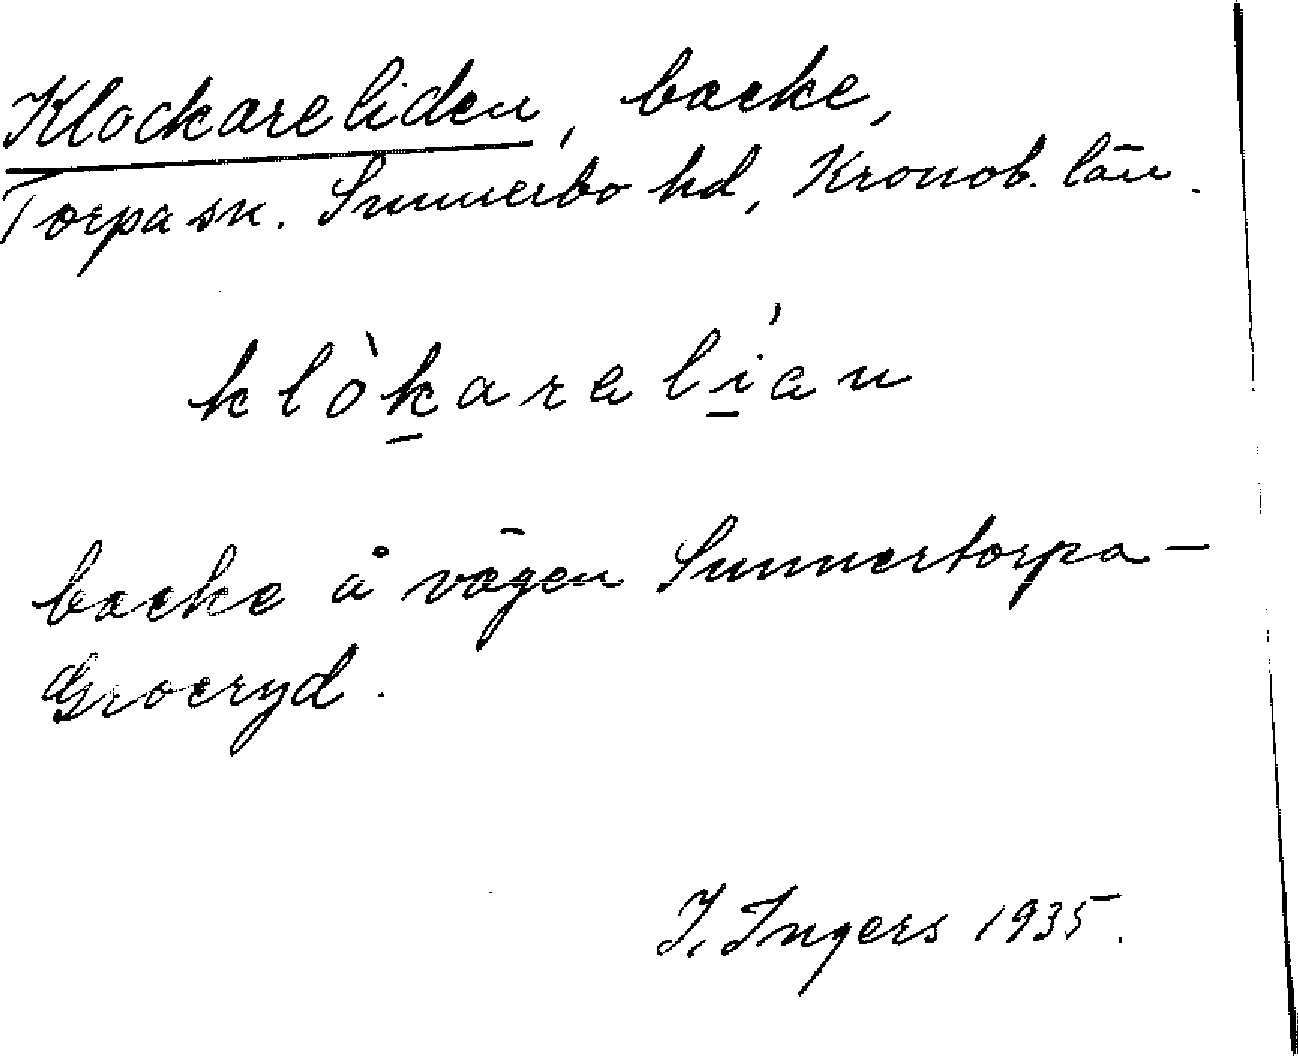 Klockareliden, backe,
Torpa sn. Sunnerbo hd, Kronob. län.
klòk̠arelí̠an
backe å vägen Sunnertorpa-
Groeryd.
I. Ingers 1935.